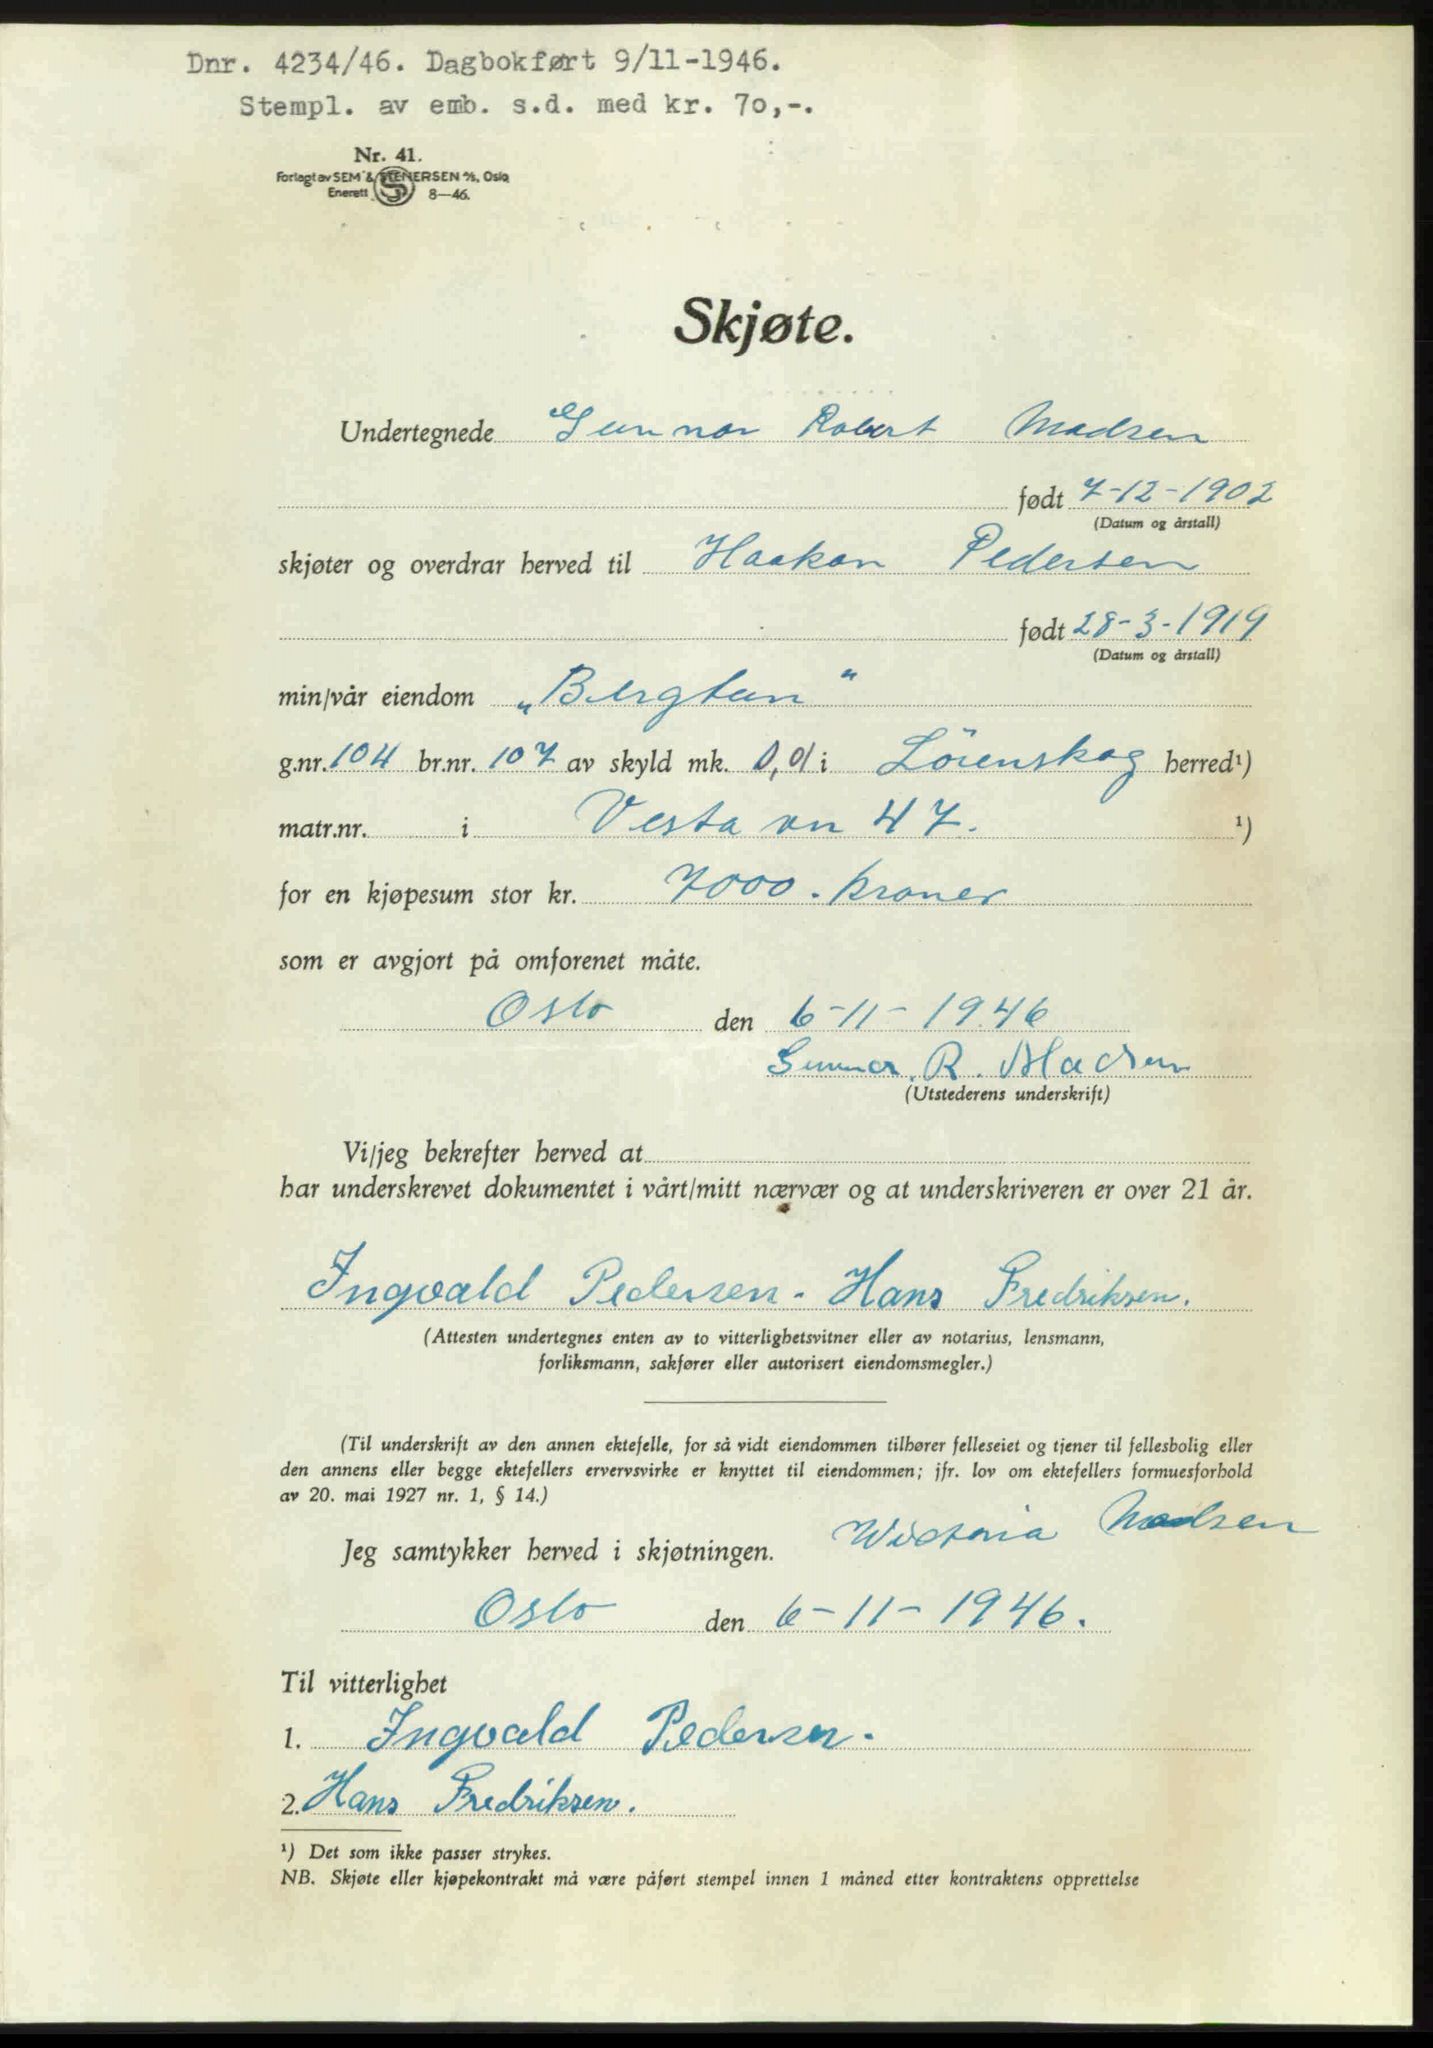 Dnr. 4234/46. Dagbokført 9/11-1946.
Stempl. av emb. s.d. med kr. 70,-.
Nr. 41.
Forlagt av SEM & STENERSEN A/S, Oslo
Enerett 8—46.
Skjøte.
Undertegnede Gunnar Robert Madsen
født 7-12-1902
(Datum og årstall)
skjøter og overdrar herved til Haakon Pedersen
født 28-3-1919
(Datum og årstall)
min/vår eiendom „Bergtun"
g.nr. 104 br.nr. 107 av skyld mk. 0,01 i Lörenskog herred¹)
matr.nr. i Vesta vn 47. ¹)
for en kjøpesum stor kr. 7000. kroner
som er avgjort på omforenet måte.
Oslo den 6-11-1946
Gunnar. R. Madsen
(Utstederens underskrift)
Vi/jeg bekrefter herved at
har underskrevet dokumentet i vårt/mitt nærvær og at underskriveren er over 21 år.
Ingvald Pedersen - Hans Fredriksen.
(Attesten undertegnes enten av to vitterlighetsvitner eller av notarius, lensmann,
forliksmann, sakfører eller autorisert eiendomsmegler.)
(Til underskrift av den annen ektefelle, for så vidt eiendommen tilhører felleseiet og tjener til fellesbolig eller
den annens eller begge ektefellers ervervsvirke er knyttet til eiendommen; jfr. lov om ektefellers formuesforhold
av 20. mai 1927 nr. 1, § 14.)
Jeg samtykker herved i skjøtningen. Wictoria Madsen
Oslo den 6-11-1946.
Til vitterlighet
1. Ingvald Pedersen.
2. Hans Fredriksen.
¹) Det som ikke passer strykes.
NB. Skjøte eller kjøpekontrakt må være påført stempel innen 1 måned etter kontraktens opprettelse